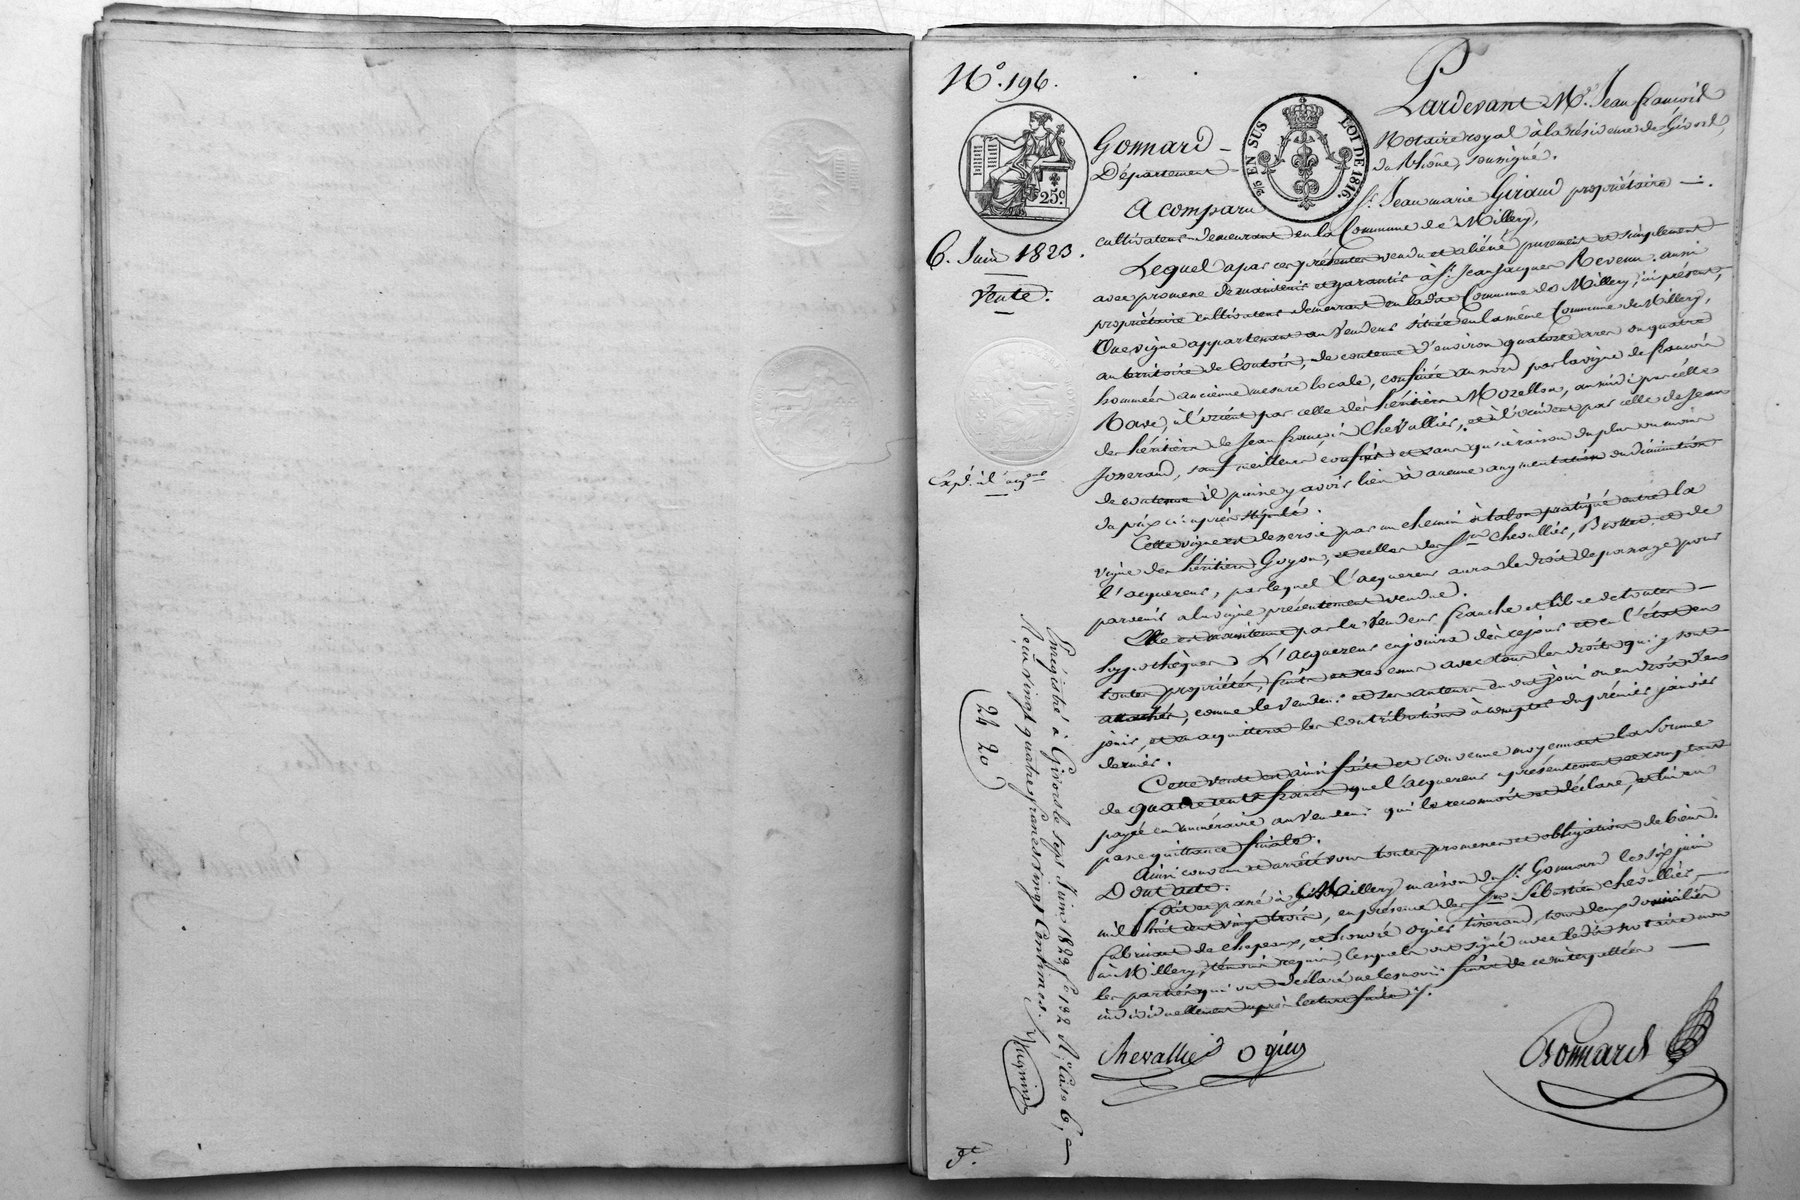 N.° 196.
Pardevant M.e Jean françois
Gonnard - Notaire royal à la résidence de Givors,
Département - du Rhône, soussigné.
EN SUS
LOI DE 1816.
25.c
A comparu S.r Jean marie Giraud propriétaire
cultivateur demeurant en la Commune de Millery,
6. Juin 1823.
Vente.
Lequel a par ces présentes vendu et aliéné purement et simplement
avec promesse de maintenir et garantir à S.r Jean Jacques Revenu aussi
propriétaire cultivateur demeurant en ladite Commune de Millery, ici présent,
Une vigne appartenant au Vendeur située en la même Commune de Millery,
au territoire de Coutoin, de contenue d'environ quatorze ares ou quatre
hommées ancienne mesure locale, confinée au nord par la vigne de françois
Rave, à l'orient par celle des héritiers Mozellon, au midi par celle
des héritiers de Jean françois Chevallier, et à l'occident par celle de Jean
Josserand, sauf meilleurs confins et sans qu'à raison du plus ou moins
de contenue il puisse y avoir lieu à aucune augmentation ou diminution
du prix ci-après stipulé.
Exp.é à l'acq.eur
Cette vigne est desservie par un chemin à talon pratiqué entre la
vigne des héritiers Guyon, et celles des S.rs Chevallier, et de
l'acquereur, par lequel l'acquereur aura le droit de passage pour
parvenir à la vigne présentement vendue.
Elle est maintenue par le Vendeur franche et libre de toutes
hypothèques. L'acquereur en jouira dès ce jour et en l'état en
toutes propriétés, fruits et revenus avec tous les droits qui y sont
attachés, comme le Vendeur et ses auteurs en ont joui ou eu droit d'en
jouir, et en acquittera les Contributions à compter du premier janvier
dernier.
Cette vente est ainsi faite et convenue moyennant la somme
de quatre cents francs que l'acquereur a présentement et comptant
payée en numéraire au Vendeur qui le reconnoit et déclare, et lui en
passe quittance finale.
Ainsi convenu et arrêté sous toutes promesses et obligations de biens.
Dont acte.
Fait et passé à Millery, maison du S.r Gonnard le six juin
mil huit cent vingt trois, en présence des S.rs Sébastien Chevallier,
fabricant de chapeaux, et honoré Ogier tisserand, tous deux domiciliés
à Millery, témoins requis, lesquels ont signé avec ledit notaire non
les parties qui ont déclaré ne le savoir faire de ce interpellées
individuellement après lecture faite./.
Chevallier Ogier
Gonnard
Enrégistré à Givors le sept Juin 1823 f.° 132 R.° Case 6,
Reçu vingt quatre francs vingt Centimes.
24 20